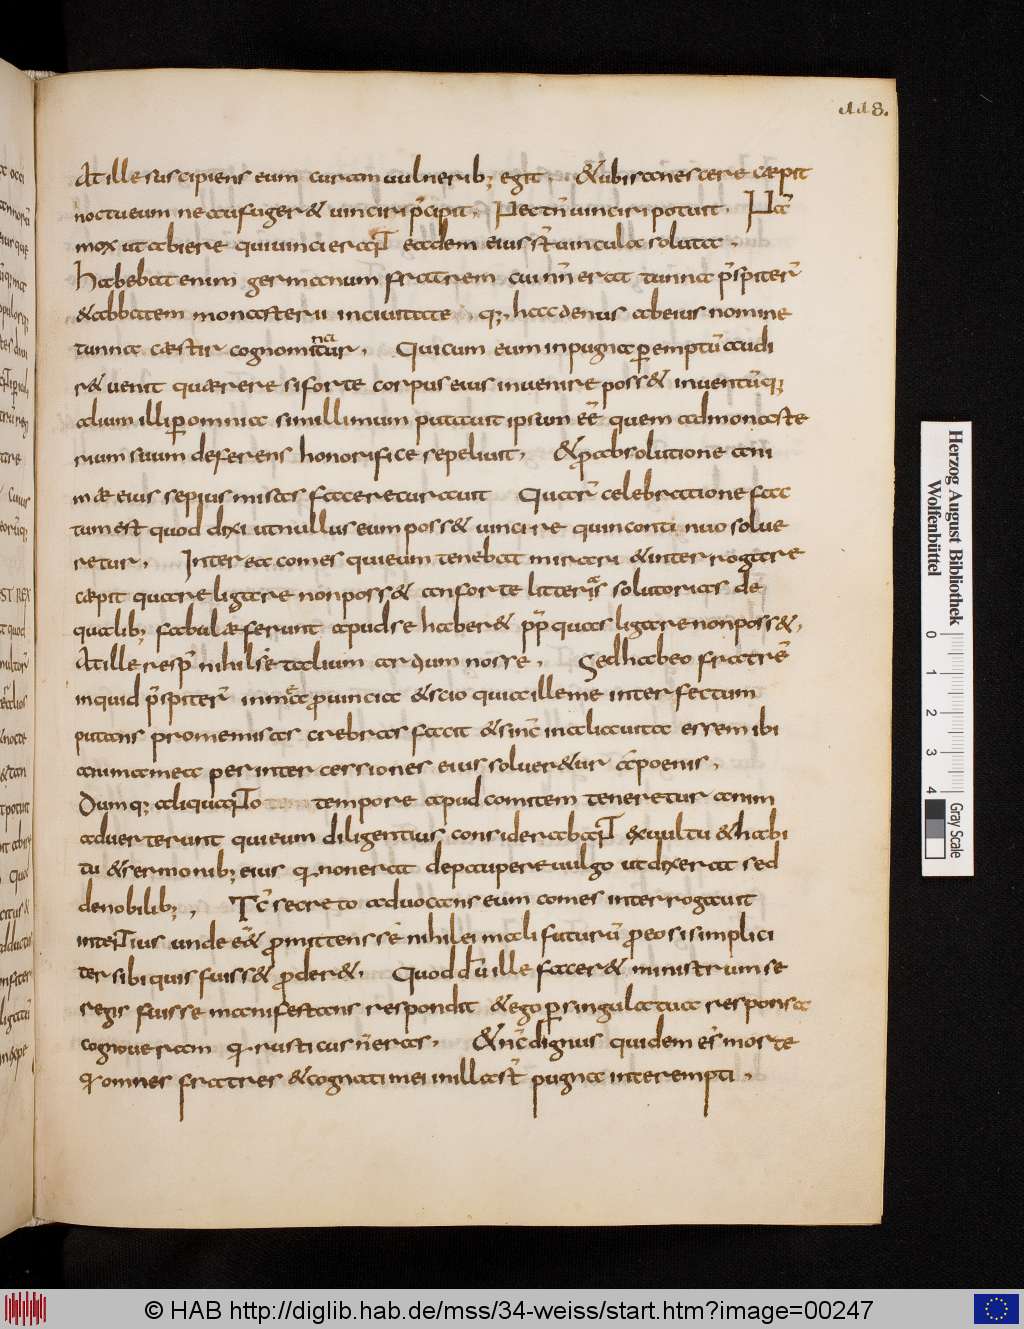 118.
At ille suscipiens eum curam vulneribꝫ egit. & ubi sanescere cæpit
noctu eum ne aufuger& vinciri p̄cipit. Nec tn̄ vinciri potuit. Nā
mox ut abiere qui vinci erat eadem eius st̄ vincula soluta.
Habebat enim germanum fratrem cui nn̄ erat tunna p̄sbiter̄
& abbatem monasterii in civitate. qꝫ hactenus ab eius nomine
tunna cæstir cognominatur. Qui cum eum in pugna ꝑemptū audi
r& venit quærere si forte corpus eius invenire poss& inventūqꝫ
alium illi ꝑ omnia simillimum putavit ipsum eē quem ad monaste
rium suum deferens honorifice sepelivit. & ꝓ absolutione ani
mæ eius sepius misas facere curavit Quarū celebratione fac
tum est quod dixi ut nullus eum poss& vincire quin continuo solve
retur. Interea comes qui eum tenebat mirari & interrogare
cæpit quare ligare non poss& an forte litteras solutorias de
qualibꝫ fabulæ ferunt apud se haber& pp̄ quas ligare non poss&.
At ille resp̄ nihil se talium artium nosse. Sed habeo fratrē
inquid p̄sbiterū in mea ꝓvincia & scio quia ille me interfectum
putans pro me misas crebras facit & si nc̄ in alia vita essem ibi
anima mea per intercessiones eius solver&ur a poenis.
Dumqꝫ aliquanto tempore apud comitem teneretur anim
adverterunt qui eum diligentius considerabant ex vultu & habi
tu & sermonibꝫ eius quia non erat de paupere vulgo ut dixerat sed
de nobilibꝫ. Tc̄ secreto advocans eum comes interrogavit
intentius unde eē& ꝓmittens se nihil ei mali futurū ꝓ eo si simplici
ter sibi quis fuiss& ꝓder&. Quod dū ille facer& ministrum se
regis fuisse manifestans respondit & ego ꝑ singula tua responsa
cognoveram quia rusticus n̄ eras. & nc̄ dignus quidem es morte
quia omnes fratres & cognati mei in illa st̄ pugna interempti.
Herzog August Bibliothek
Wolfenbüttel
0 1 2 3 4
Gray Scale
© HAB http://diglib.hab.de/mss/34-weiss/start.htm?image=00247